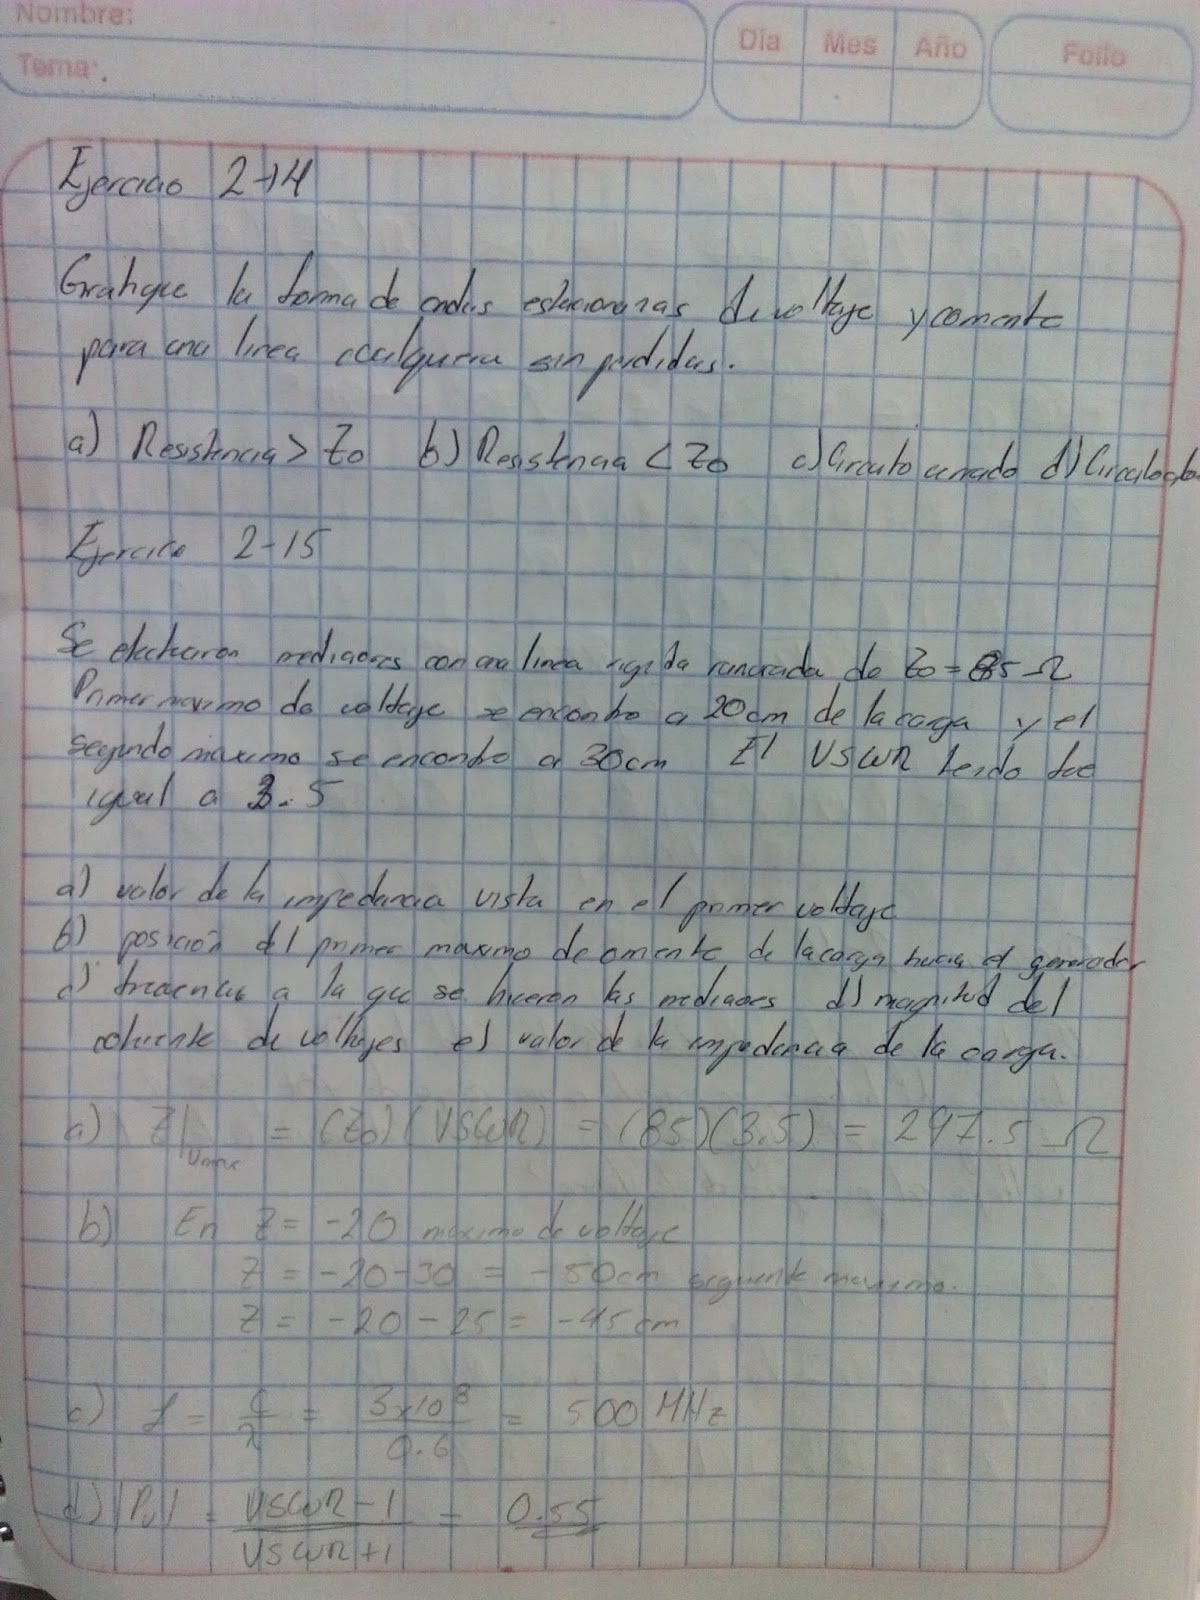 Nombre:
Tema:
Día Mes Año Folio
Ejercicio 2-14
Grafique la forma de ondas estacionarias de voltaje y comente
para una linea cualquiera sin perdidas.
a) Resistencia > Zo b) Resistencia < Zo c) Circuito cerrado d) Circuito
Ejercicio 2-15
Se efectuaron mediciones con una linea rigida ranurada de Zo = 85 Ω
Primer maximo de voltaje se encontro a 20cm de la carga y el
segundo maximo se encontro a 30cm El VSWR leido fue
igual a 3.5
a) valor de la impedancia vista en el primer voltaje
b) posición del primer maximo de corriente de la carga hacia el generador
c) frecuencia a la que se hicieron las mediciones d) magnitud del
de voltajes e) valor de la impedancia de la carga.
a) Z|vmax = (Zo)(VSWR) = (85)(3.5) = 297.5 Ω
b) En Z = -20 maximo de voltaje
Z = -20-30 = -50cm siguiente maximo.
Z = -20 - 25 = -45 cm
c) f = c/λ = 3x10^8/0.6 = 500 MHz
d) |Pv| = VSWR-1/VSWR+1 = 0.55